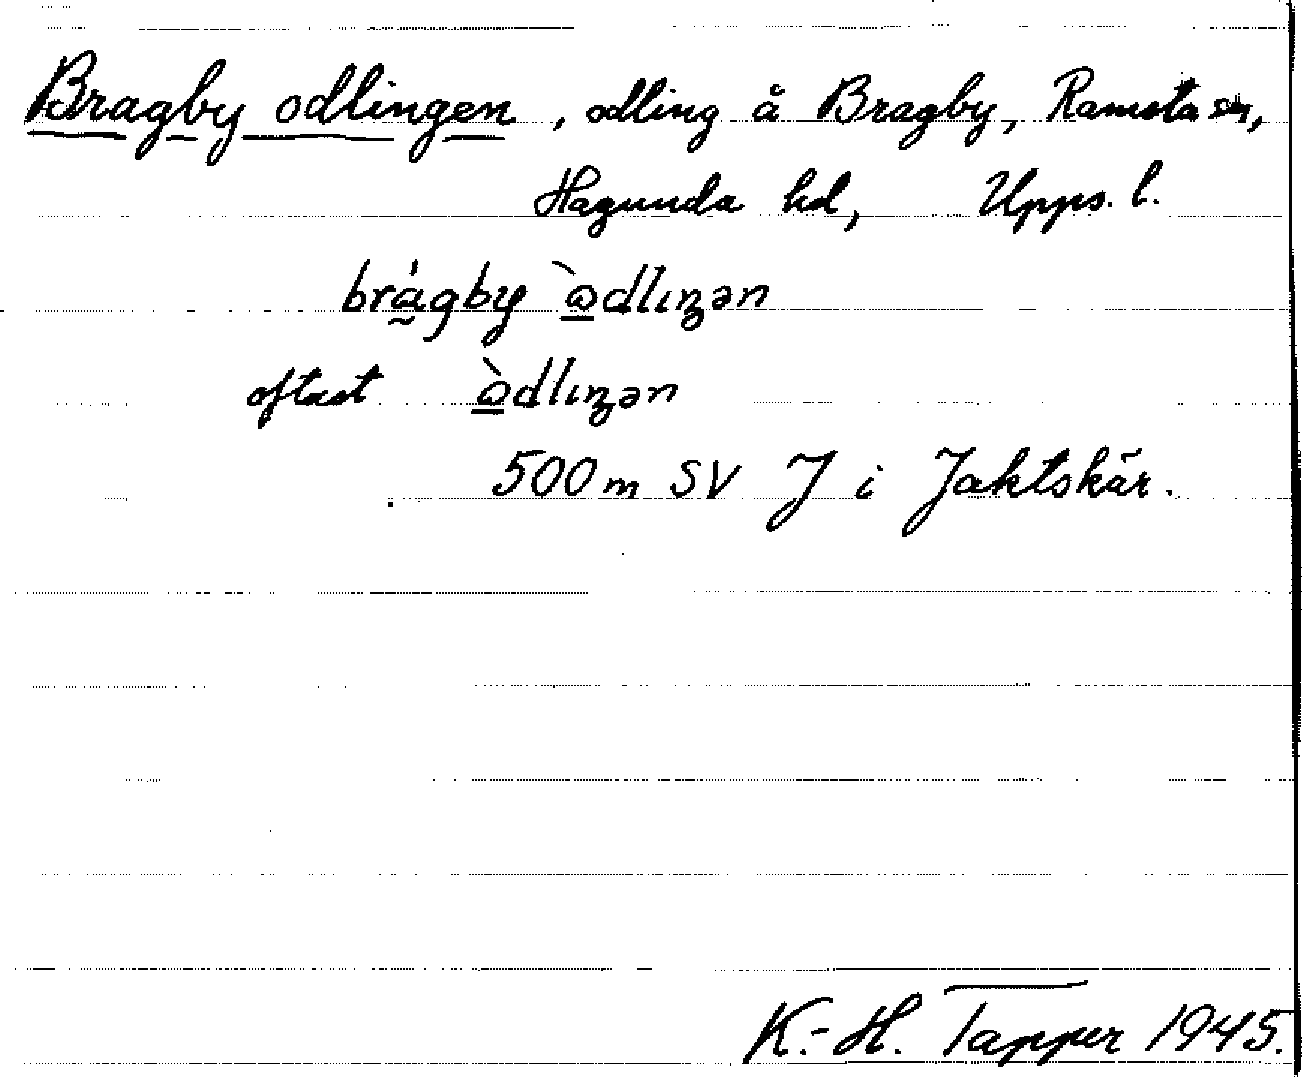 Bragby odlingen, odling å Bragby, Ramsta sn,
Hagunda hd, Upps. l.
brá̰gby ò̲dlıŋən
oftast ò̲dlıŋən
500 m SV J i Jaktskär.
K.-H. Tapper 1945.